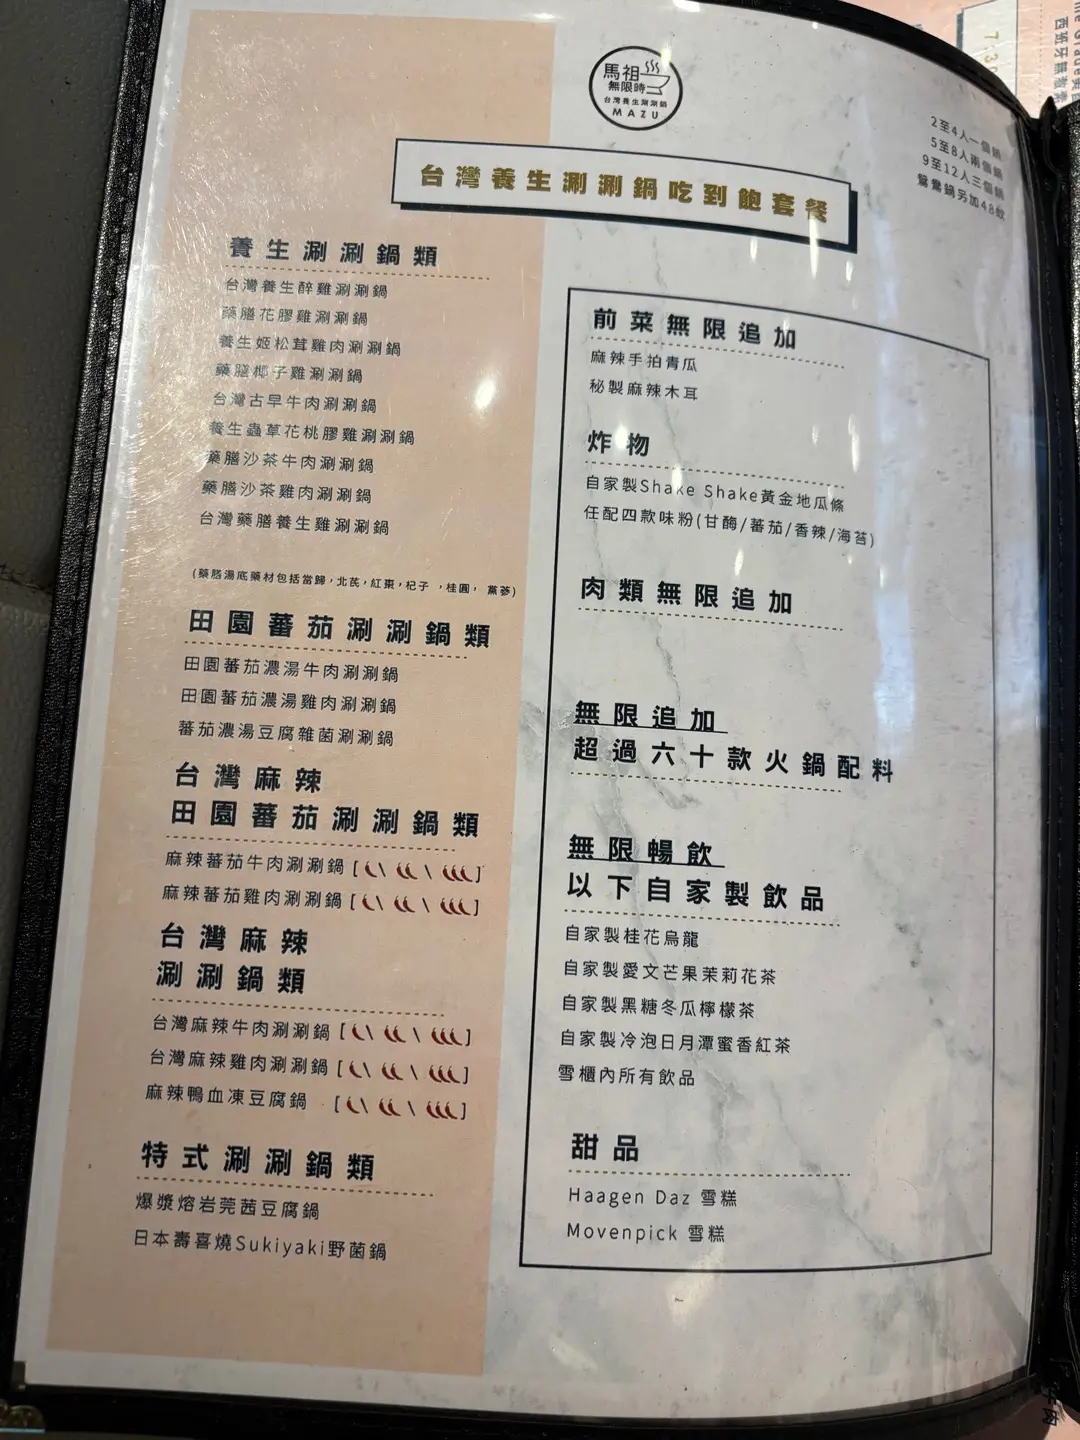 馬祖
無限時
台灣養生涮涮鍋
MAZU
2至4人一個鍋
5至8人兩個鍋
9至12人三個鍋
鴛鴦鍋另加48蚊
台灣養生涮涮鍋吃到飽套餐
養生涮涮鍋類
台灣養生醉雞涮涮鍋
藥膳花膠雞涮涮鍋
養生姬松茸雞肉涮涮鍋
藥膳椰子雞涮涮鍋
台灣古早牛肉涮涮鍋
養生蟲草花桃膠雞涮涮鍋
藥膳沙茶牛肉涮涮鍋
藥膳沙茶雞肉涮涮鍋
台灣藥膳養生雞涮涮鍋
(藥膳湯底藥材包括當歸，北芪，紅棗，杞子，桂圓，黨蔘)
田園蕃茄涮涮鍋類
田園蕃茄濃湯牛肉涮涮鍋
田園蕃茄濃湯雞肉涮涮鍋
蕃茄濃湯豆腐雜菌涮涮鍋
台灣麻辣
田園蕃茄涮涮鍋類
麻辣蕃茄牛肉涮涮鍋 [ \ \ ]
麻辣蕃茄雞肉涮涮鍋 [ \ \ ]
台灣麻辣
涮涮鍋類
台灣麻辣牛肉涮涮鍋 [ \ \ ]
台灣麻辣雞肉涮涮鍋 [ \ \ ]
麻辣鴨血凍豆腐鍋 [ \ \ ]
特式涮涮鍋類
爆漿熔岩莞茜豆腐鍋
日本壽喜燒Sukiyaki野菌鍋
前菜無限追加
麻辣手拍青瓜
秘製麻辣木耳
炸物
自家製Shake Shake黃金地瓜條
任配四款味粉(甘酶/蕃茄/香辣/海苔)
肉類無限追加
無限追加
超過六十款火鍋配料
無限暢飲
以下自家製飲品
自家製桂花烏龍
自家製愛文芒果茉莉花茶
自家製黑糖冬瓜檸檬茶
自家製冷泡日月潭蜜香紅茶
雪櫃內所有飲品
甜品
Haagen Daz 雪糕
Movenpick 雪糕